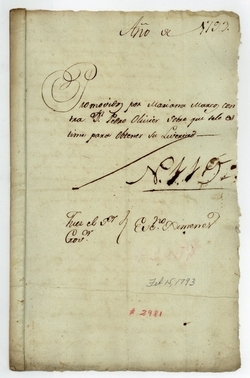 Año de 1793.
Promovidos por Mariana Marcos con
tra Dn. Pedro Olivier Sobre que se le es
time para obtener su Libertad
N. 112
Juez el Sor
Govr.
Esno. Ximenes
Feb 15, 1793
# 2981